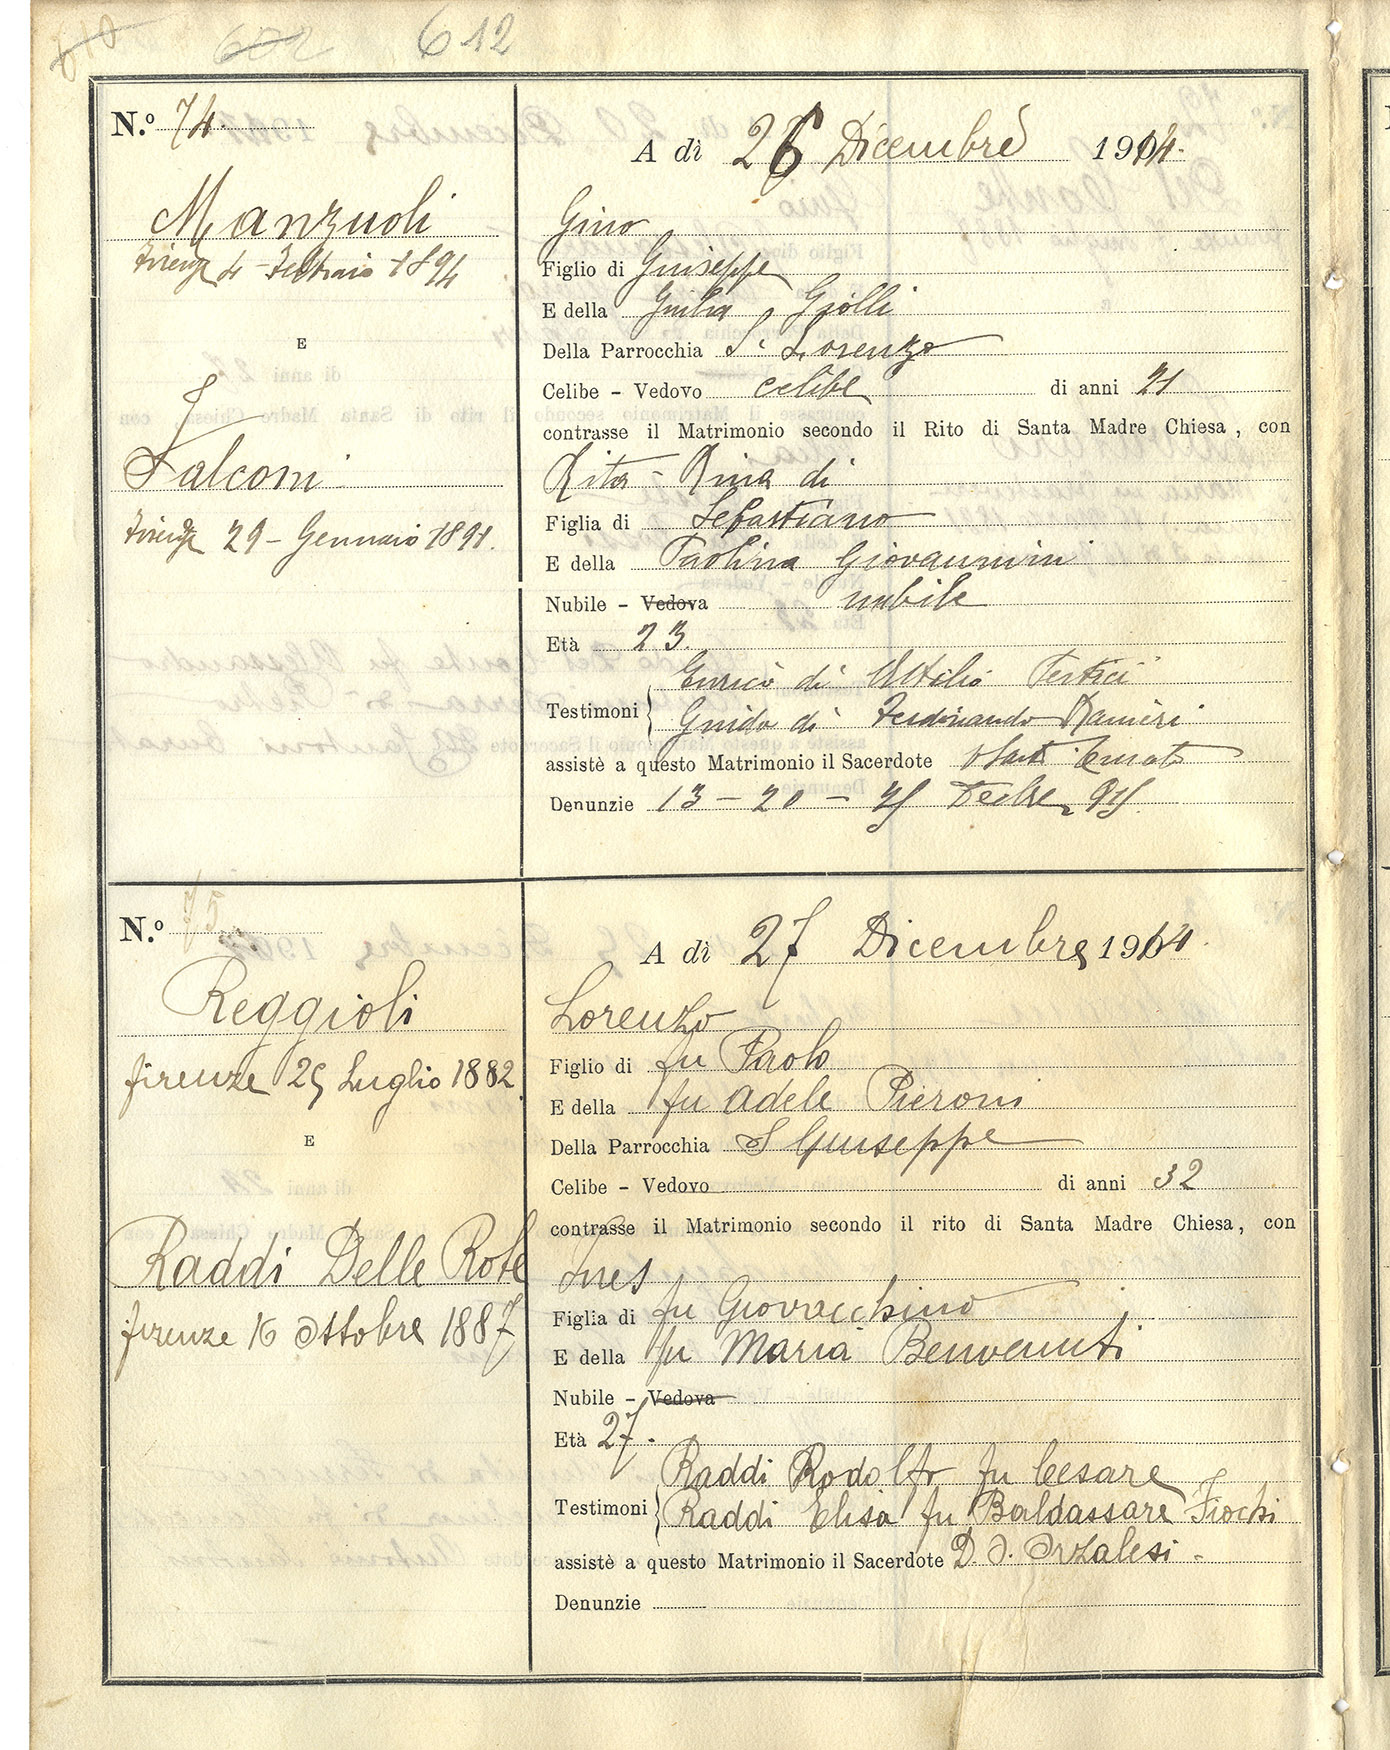 612
N.º 74.
Manzuoli
Firenze 4 - Febbraio - 1894
E
Falconi
Firenze 29 - Gennaio 1891.
A dì 26 Dicembre 1914.
Gino
Figlio di Giuseppe
E della Giulia Giolli
Della Parrocchia S. Lorenzo
Celibe - Vedovo celibe di anni 21
contrasse il Matrimonio secondo il Rito di Santa Madre Chiesa, con
Rita - Rina di
Figlia di Sebastiano
E della Paolina Giovannini
Nubile - Vedova nubile
Età 23.
Enrico di Attilio
Testimoni Guido di Ferdinando Ranieri
assistè a questo Matrimonio il Sacerdote
Denunzie 13 - 20 - 25
N.º 75
Reggioli
firenze 25 Luglio 1882
E
Raddi Delle Rote
firenze 16 Ottobre 1887
A dì 27 Dicembre 1914
Lorenzo
Figlio di fu Paolo
E della fu Adele Pieroni
Della Parrocchia S Giuseppe
Celibe - Vedovo di anni 32
contrasse il Matrimonio secondo il rito di Santa Madre Chiesa, con
Ines
Figlia di fu Giovacchino
E della fu Maria Benvenuti
Nubile - Vedova
Età 27.
Raddi Rodolfo fu Cesare
Testimoni Raddi Elisa fu Baldassare Fiochi
assistè a questo Matrimonio il Sacerdote D. O. Orzalesi -
Denunzie